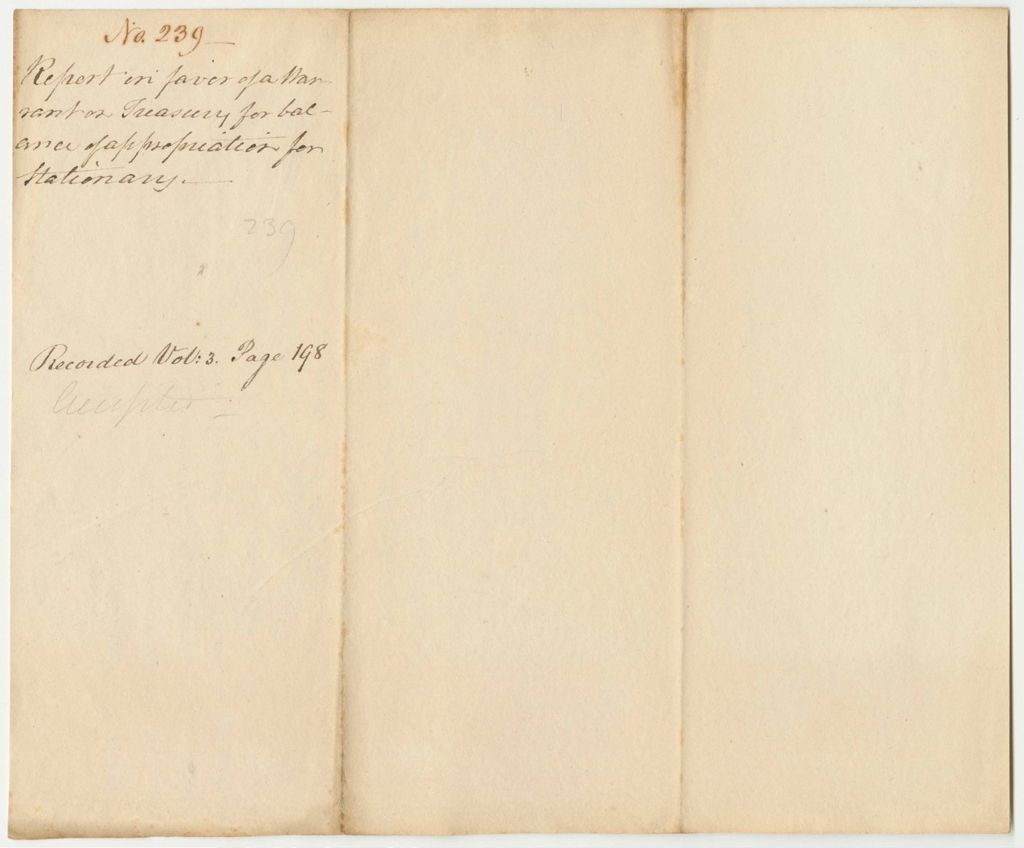 No. 239
Report in favor of a War-
rant on Treasury for bal-
ance of appropriation for
Stationary.
239
Recorded Vol: 3. Page 198
Accepted